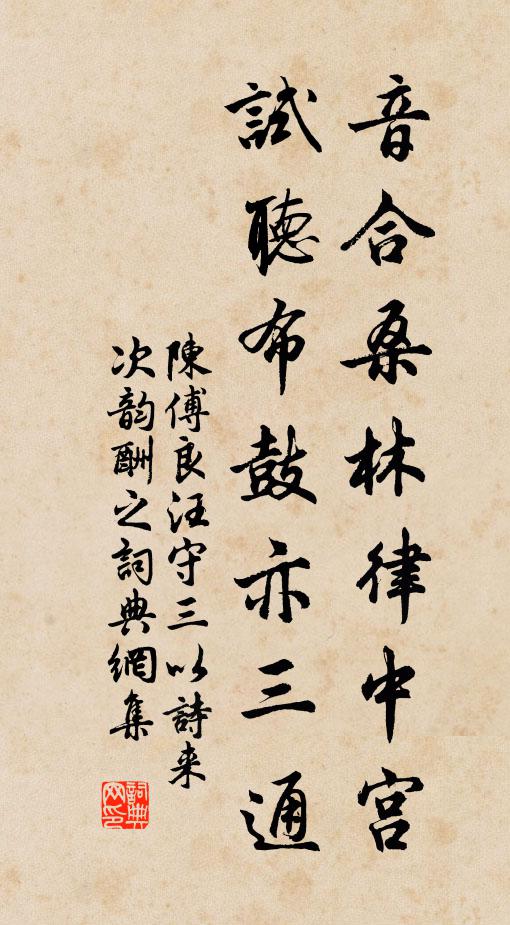 音合桑林律中宫
試聽布鼓亦三通
陳傅良汪守三以詩来
次韵酬之詞典網集
詞典网印